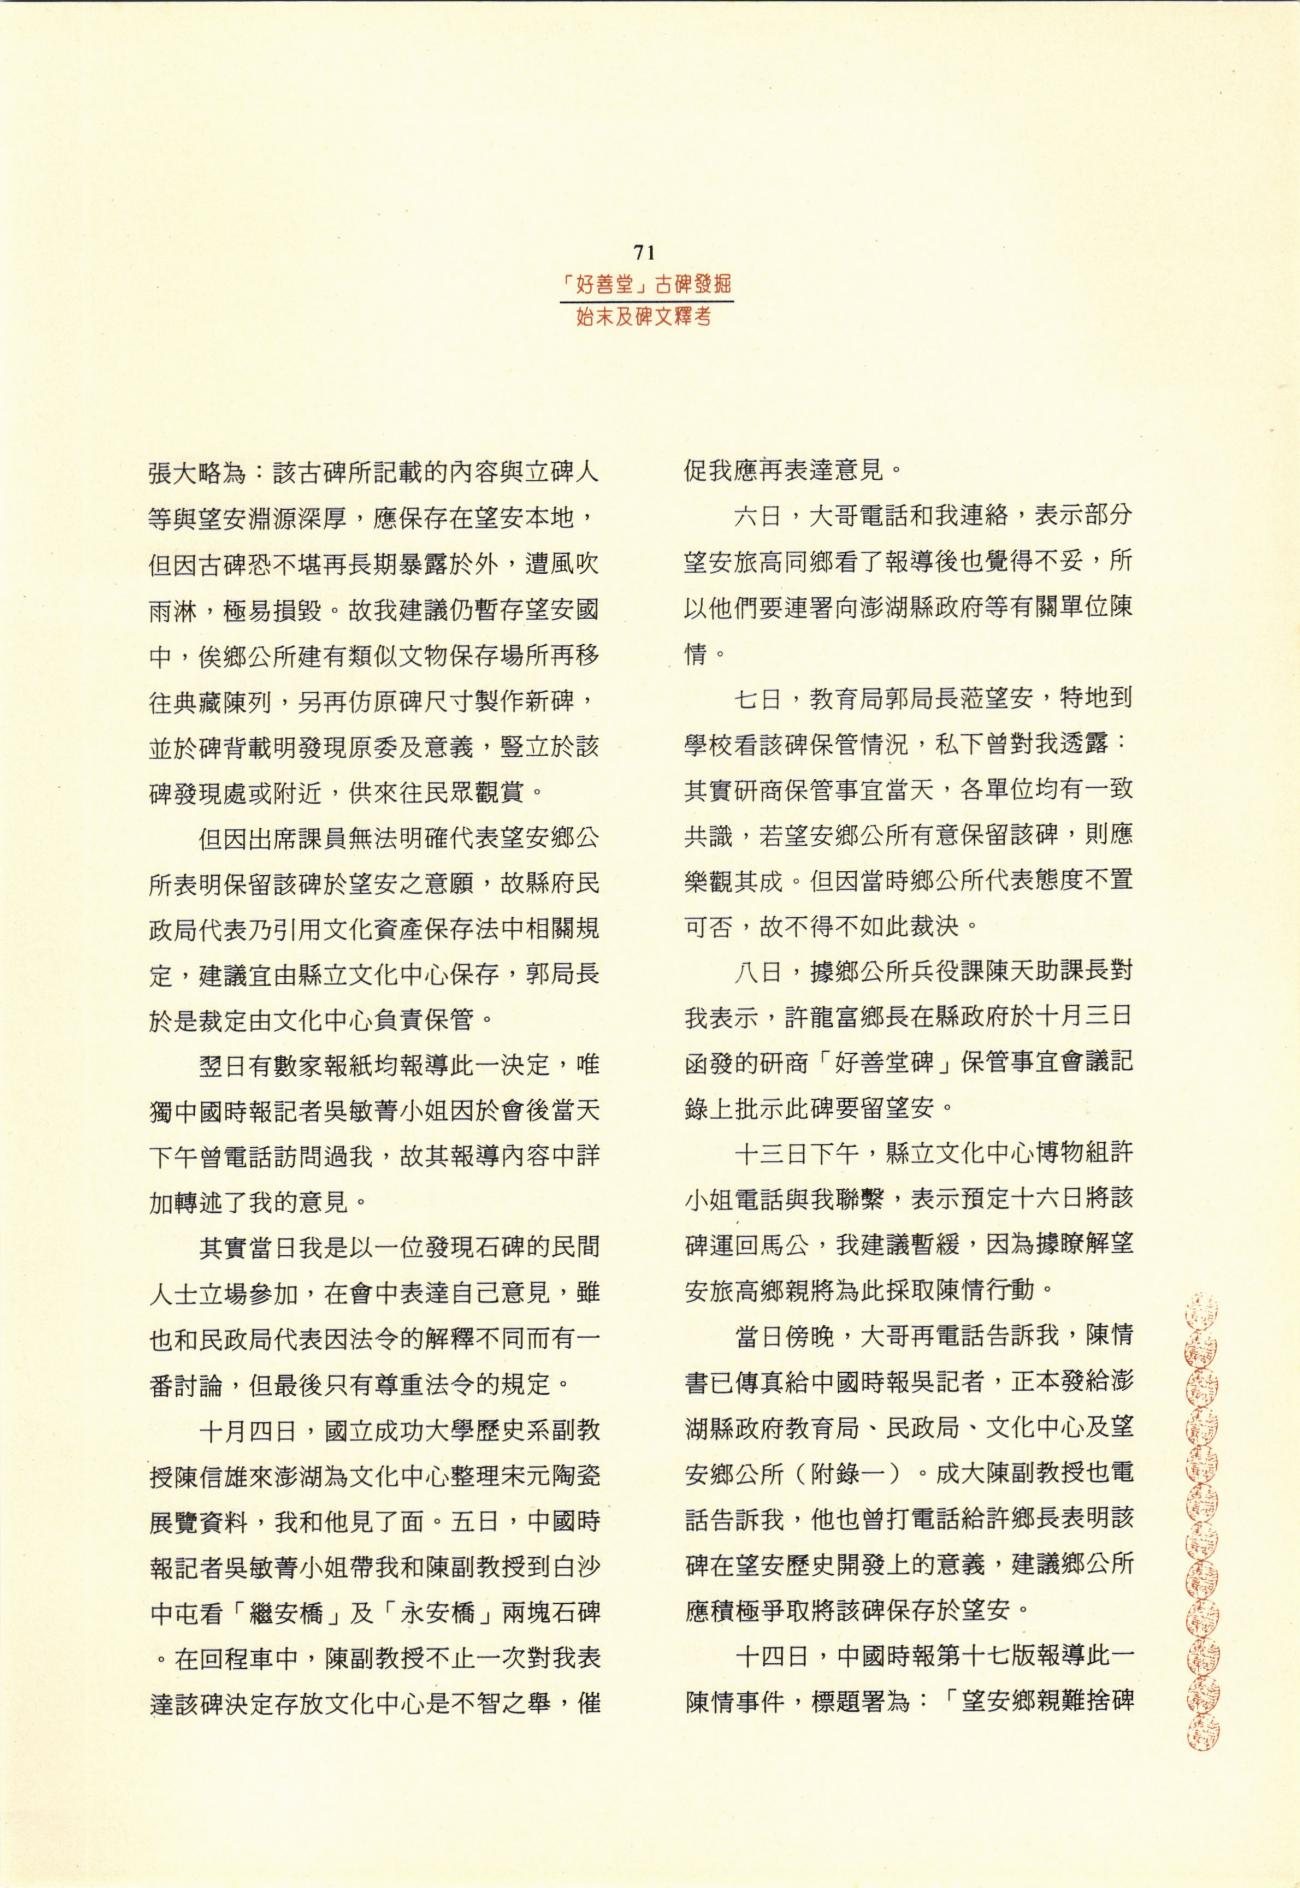 71
「好善堂」古碑發掘
始末及碑文釋考
張大略為：該古碑所記載的內容與立碑人
等與望安淵源深厚，應保存在望安本地，
但因古碑恐不堪再長期暴露於外，遭風吹
雨淋，極易損毀。故我建議仍暫存望安國
中，俟鄉公所建有類似文物保存場所再移
往典藏陳列，另再仿原碑尺寸製作新碑，
並於碑背載明發現原委及意義，豎立於該
碑發現處或附近，供來往民眾觀賞。
但因出席課員無法明確代表望安鄉公
所表明保留該碑於望安之意願，故縣府民
政局代表乃引用文化資產保存法中相關規
定，建議宜由縣立文化中心保存，郭局長
於是裁定由文化中心負責保管。
翌日有數家報紙均報導此一決定，唯
獨中國時報記者吳敏菁小姐因於會後當天
下午曾電話訪問過我，故其報導內容中詳
加轉述了我的意見。
其實當日我是以一位發現石碑的民間
人士立場參加，在會中表達自己意見，雖
也和民政局代表因法令的解釋不同而有一
番討論，但最後只有尊重法令的規定。
十月四日，國立成功大學歷史系副教
授陳信雄來澎湖為文化中心整理宋元陶瓷
展覽資料，我和他見了面。五日，中國時
報記者吳敏菁小姐帶我和陳副教授到白沙
中屯看「繼安橋」及「永安橋」兩塊石碑
。在回程車中，陳副教授不止一次對我表
達該碑決定存放文化中心是不智之舉，催
促我應再表達意見。
六日，大哥電話和我連絡，表示部分
望安旅高同鄉看了報導後也覺得不妥，所
以他們要連署向澎湖縣政府等有關單位陳
情。
七日，教育局郭局長蒞望安，特地到
學校看該碑保管情況，私下曾對我透露：
其實研商保管事宜當天，各單位均有一致
共識，若望安鄉公所有意保留該碑，則應
樂觀其成。但因當時鄉公所代表態度不置
可否，故不得不如此裁決。
八日，據鄉公所兵役課陳天助課長對
我表示，許龍富鄉長在縣政府於十月三日
函發的研商「好善堂碑」保管事宜會議記
錄上批示此碑要留望安。
十三日下午，縣立文化中心博物組許
小姐電話與我聯繫，表示預定十六日將該
碑運回馬公，我建議暫緩，因為據瞭解望
安旅高鄉親將為此採取陳情行動。
當日傍晚，大哥再電話告訴我，陳情
書已傳真給中國時報吳記者，正本發給澎
湖縣政府教育局、民政局、文化中心及望
安鄉公所（附錄一）。成大陳副教授也電
話告訴我，他也曾打電話給許鄉長表明該
碑在望安歷史開發上的意義，建議鄉公所
應積極爭取將該碑保存於望安。
十四日，中國時報第十七版報導此一
陳情事件，標題署為：「望安鄉親難捨碑